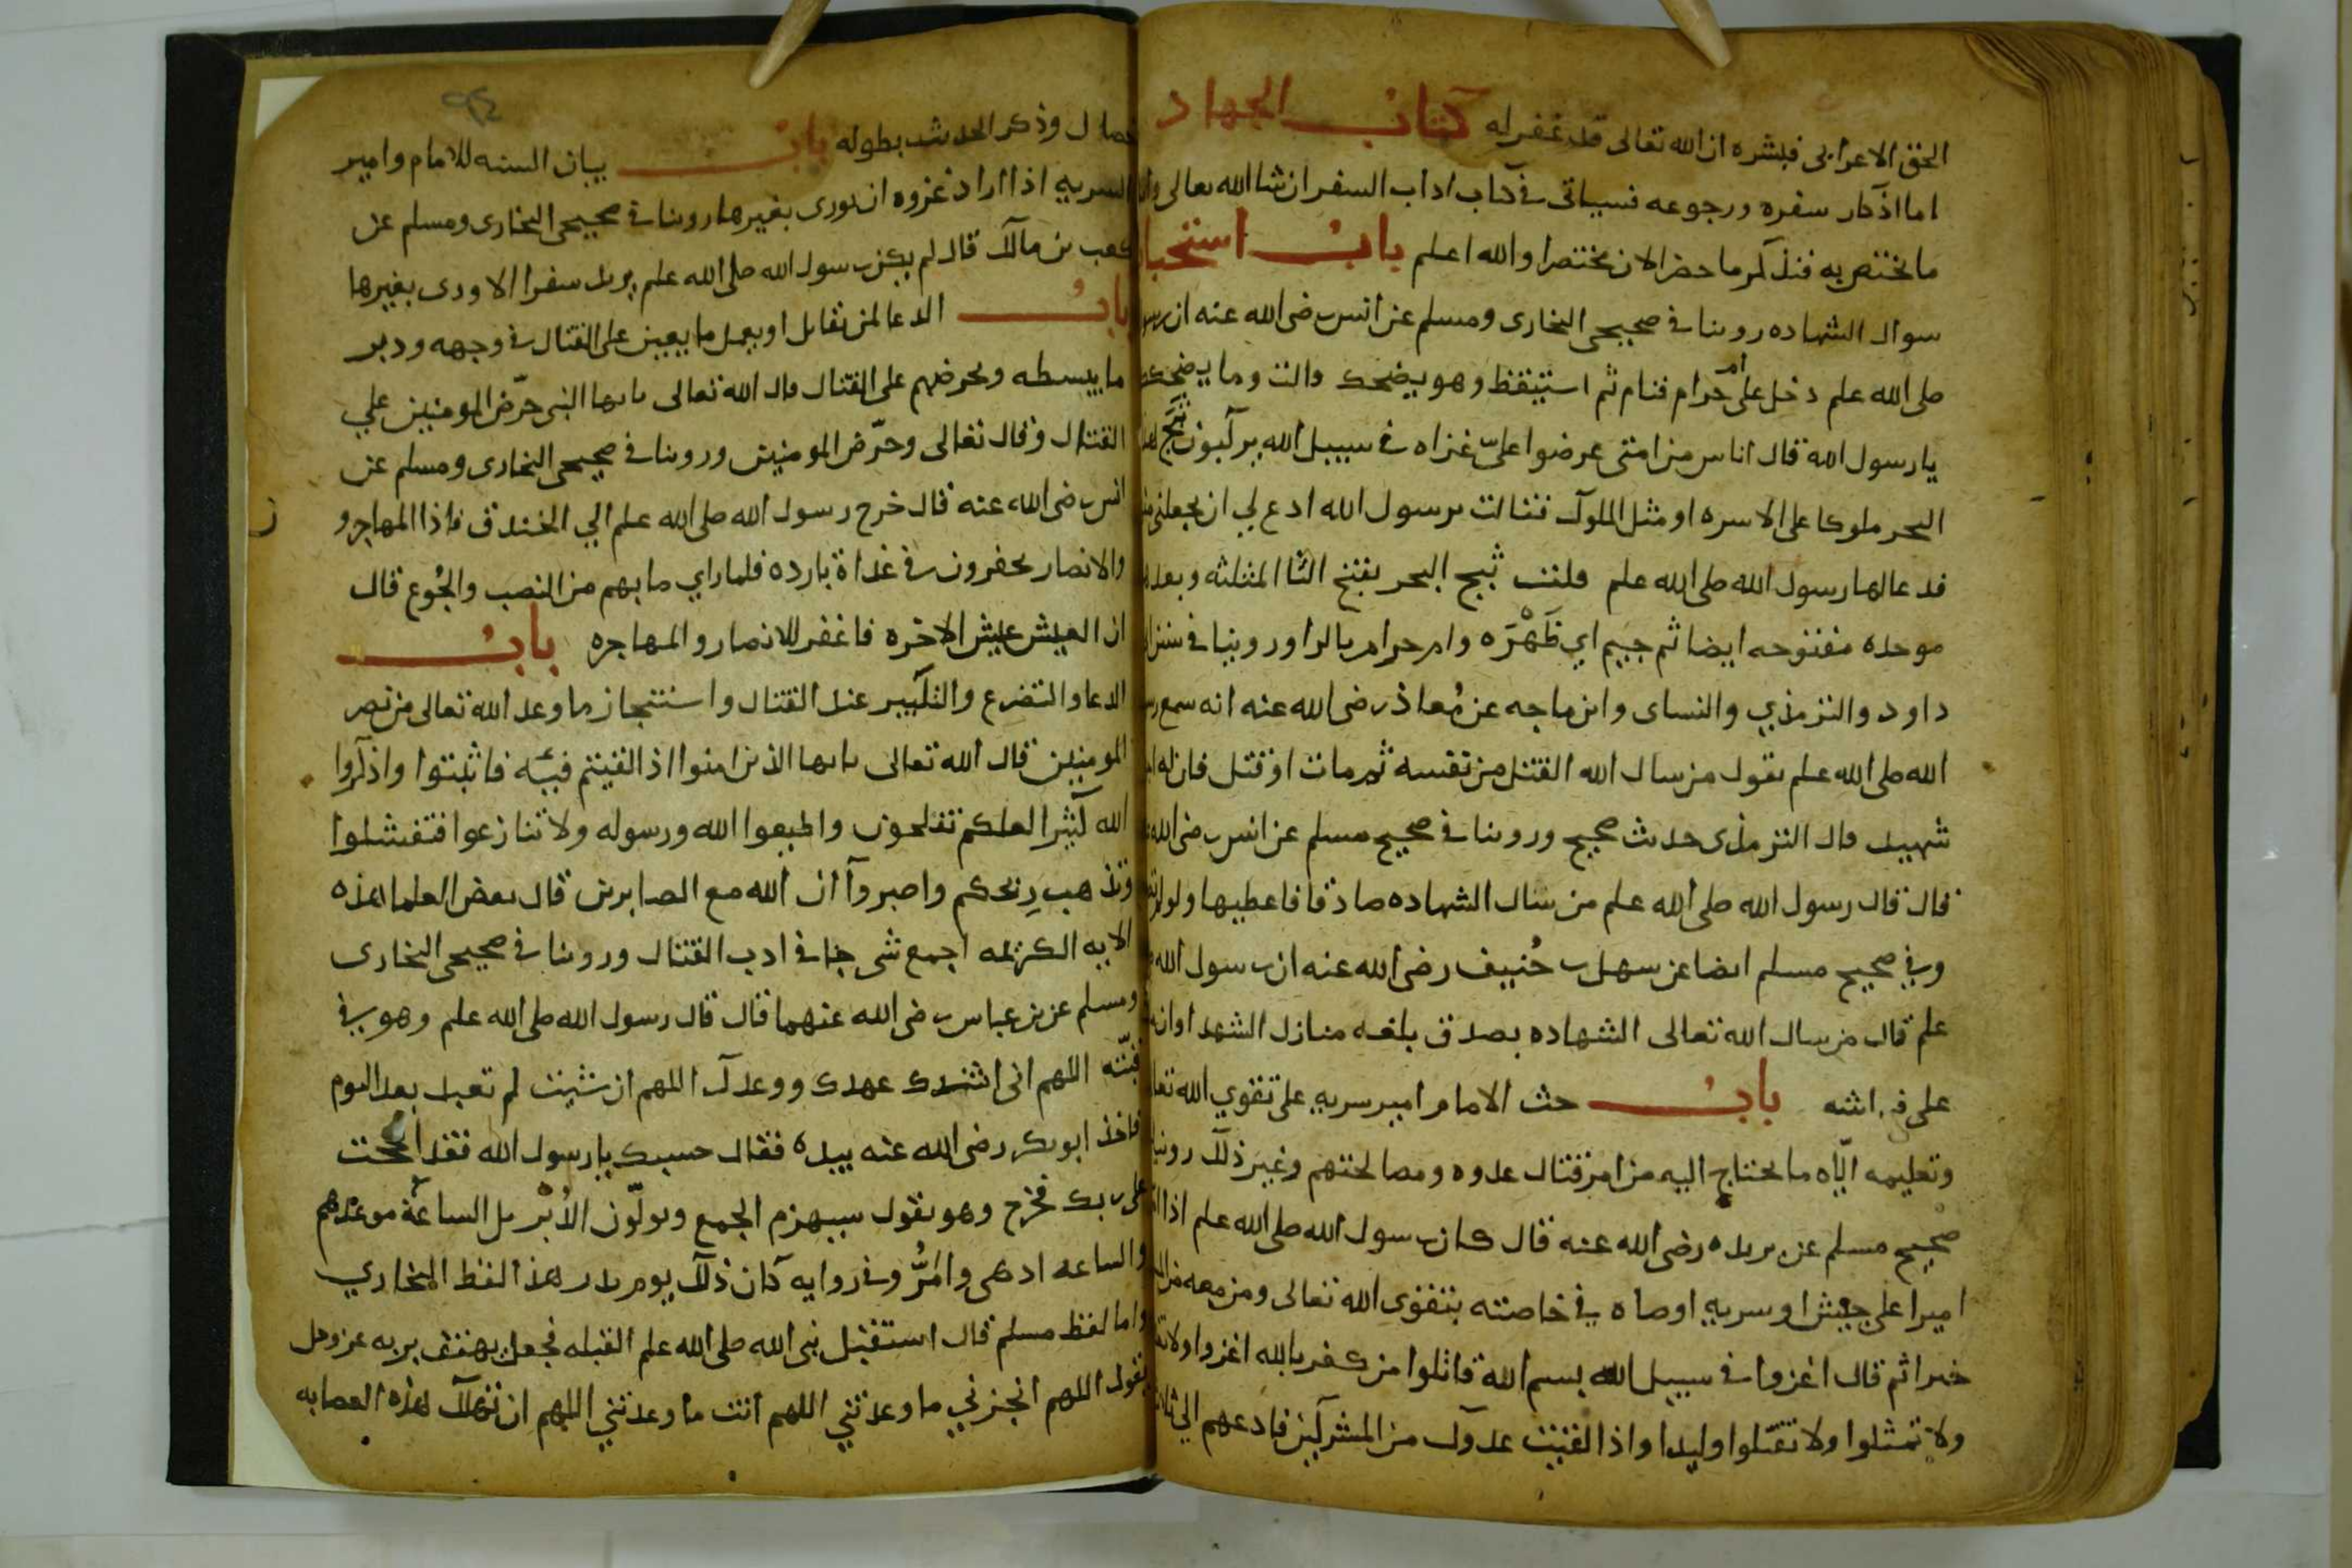 الحق الاعرابى فبشره ان الله تعالى قد غفر له كتاب الجهاد
اما اذكار سفره ورجوعه فسياتى فى كتاب اداب السفر ان شا الله تعالى واما
ما يختص به فنذكر ما حضر الان مختصرا والله اعلم باب استحباب
سوال الشهاده روينا فى صحيحى البخارى ومسلم عن انس رضى الله عنه ان رسول
صلى الله علم دخل على ام حرام فنام ثم استيقظ وهو يضحك قالت وما يضحكك
يا رسول الله قال اناس من امتى عرضوا علىّ غزاه فى سبيل الله يركبون ثَبَج هذا
البحر ملوكا على الاسره او مثل الملوك فقالت يرسول الله ادع لي ان يجعلنى منهم
فدعا لها رسول الله صلى الله علم قلت ثبج البحر بفتح الثا المثلثه وبعدها
موحده مفتوحه ايضا ثم جيم اي ظَهْرَه وام حرام بالرا وروينا في سنن ابى
داود والترمذي والنساى وابن ماجه عن مُعاذ رضى الله عنه انه سمع رسول
الله صلى الله علم يقول من سال الله القتل من نفسه ثم مات او قتل فان له اجر
شهيد قال الترمذى حديث صحيح وروينا فى صحيح مسلم عن انس رضى الله
قال قال رسول الله صلى الله علم من سال الشهاده صادقا فاعطيها ولو لم تصبه
وفي صحيح مسلم ايضا عن سهل بن حُنيف رضى الله عنه ان رسول الله
علم قال من سال الله تعالى الشهاده بصدق بلغه منازل الشهدا وان
على فراشه باب حث الامام امير سريه على تقوي الله تعالى
وتعليمه اياه ما يحتاج اليه من امر قتال عدوه ومصالحتهم وغير ذلك روينا
صحيح مسلم عن بريده رضى الله عنه قال كان رسول الله صلى الله علم اذا امر
اميرا على جيش او سريه اوصاه في خاصته بتقوى الله تعالى ومن معه من المسلمين
خيرا ثم قال اغزوا فى سبيل الله بسم الله قاتلوا من كفر بالله اغزوا ولا تغلوا
ولا تمثلوا ولا تقتلوا وليدا واذا لقيت عدوك من المشركين فادعهم الي ثلاث
خصال وذكر الحديث بطوله باب بيان السنه للامام وامير
السريه اذا اراد غزوه ان يورى بغيرها روينا فى صحيحى البخارى ومسلم عن
كعب بن مالك قال لم يكن رسول الله صلى الله علم يريد سفرا الا ورى بغيرها
باب الدعا لمن يقاتل او يعمل ما يعين على القتال فى وجهه وذكر
ما يبسطه ويحرضهم على القتال قال الله تعالى يايها النبى حرّض المومنين علي
القتال وقال تعالى وحرّض المومنين وروينا في صحيحى البخارى ومسلم عن
انس رضى الله عنه قال خرج رسول الله صلى الله علم الي الخندق فاذا المهاجرو
والانصار يحفرون فى غداة بارده فلما راي ما بهم من النصب والجُوع قال
ان العيش عيش الاخره فاغفر للانصار والمهاجره باب
الدعا والتضرع والتكبير عند القتال واستنجاز ما وعد الله تعالى من نصر
المومنين قال الله تعالى يايها الذين امنوا اذا لقيتم فيئه فاثبتوا واذكروا
الله كثيرا لعلكم تفلحون واطيعوا الله ورسوله ولا تنازعوا فتفشلوا
وتذهب رِيحكم واصبروا ان الله مع الصابرين قال بعض العلما هذه
الايه الكريمه اجمع شى جا فى ادب القتال وروينا فى صحيحى البخارى
ومسلم عن بن عباس رضى الله عنهما قال قال رسول الله صلى الله علم وهو فى
قبّته اللهم انى انشدك عهدك ووعدك اللهم ان شيت لم تعبد بعد اليوم
فاخذ ابو بكر رضى الله عنه بيده فقال حسبك يا رسول الله فقد الححت
على ربك فخرج وهو يقول سيهزم الجمع ويولّون الدُبُر بل الساعة موعدهم
والساعه ادهى وامَرُّ وفى روايه كان ذلك يوم بدر هذا لفظ البخاري
واما لفظ مسلم قال استقبل نبى الله صلى الله علم القبله فجعل يهتف بربه عز وجل
يقول اللهم انجز لي ما وعدتني اللهم اتت ما وعدتني اللهم ان تهلك هذه العصابه